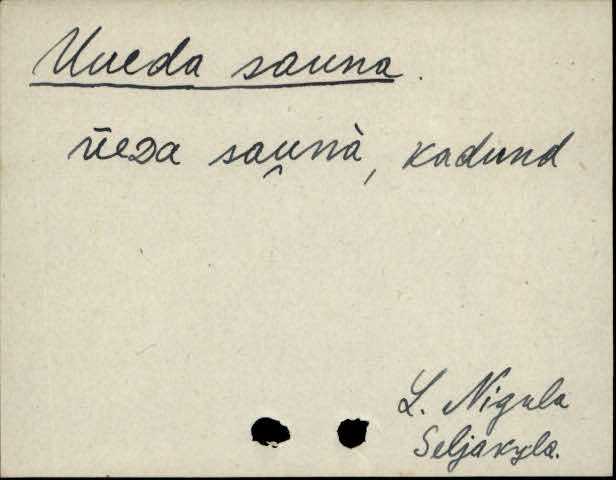 Uueda sauna.
ūeᴅa sau̯nà, kadund
L. Nigula
Seljaküla.